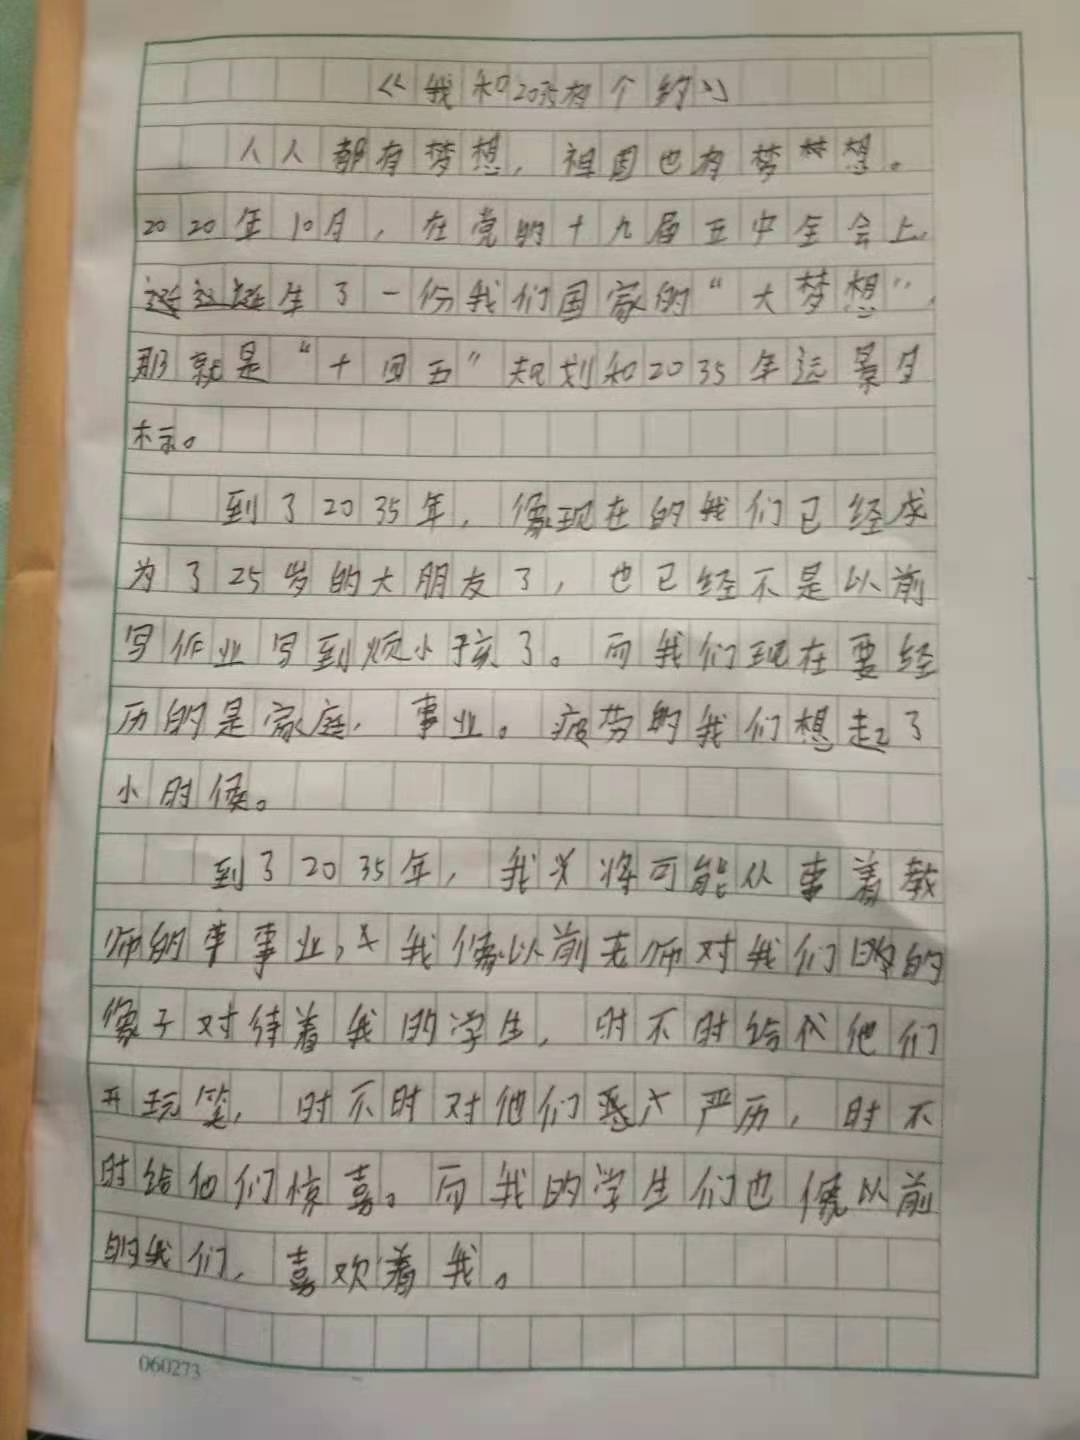 《我和2035有个约》
人人都有梦想，祖国也有梦想。
2020年10月，在党的十九届五中全会上，
诞生了一份我们国家的“大梦想”，
那就是“十四五”规划和2035年远景目
标。
到了2035年，像现在的我们已经成
为了25岁的大朋友了，也已经不是以前
写作业写到烦小孩了。而我们现在要经
历的是家庭，事业。疲劳的我们想起了
小时候。
到了2035年，我将可能从事着教
师的事业，我像以前老师对我们的
像子对待着我的学生，时不时给他们
开玩笑，时不时对他们严历，时不
时给他们惊喜。而我的学生们也像以前
的我们，喜欢着我。
060273